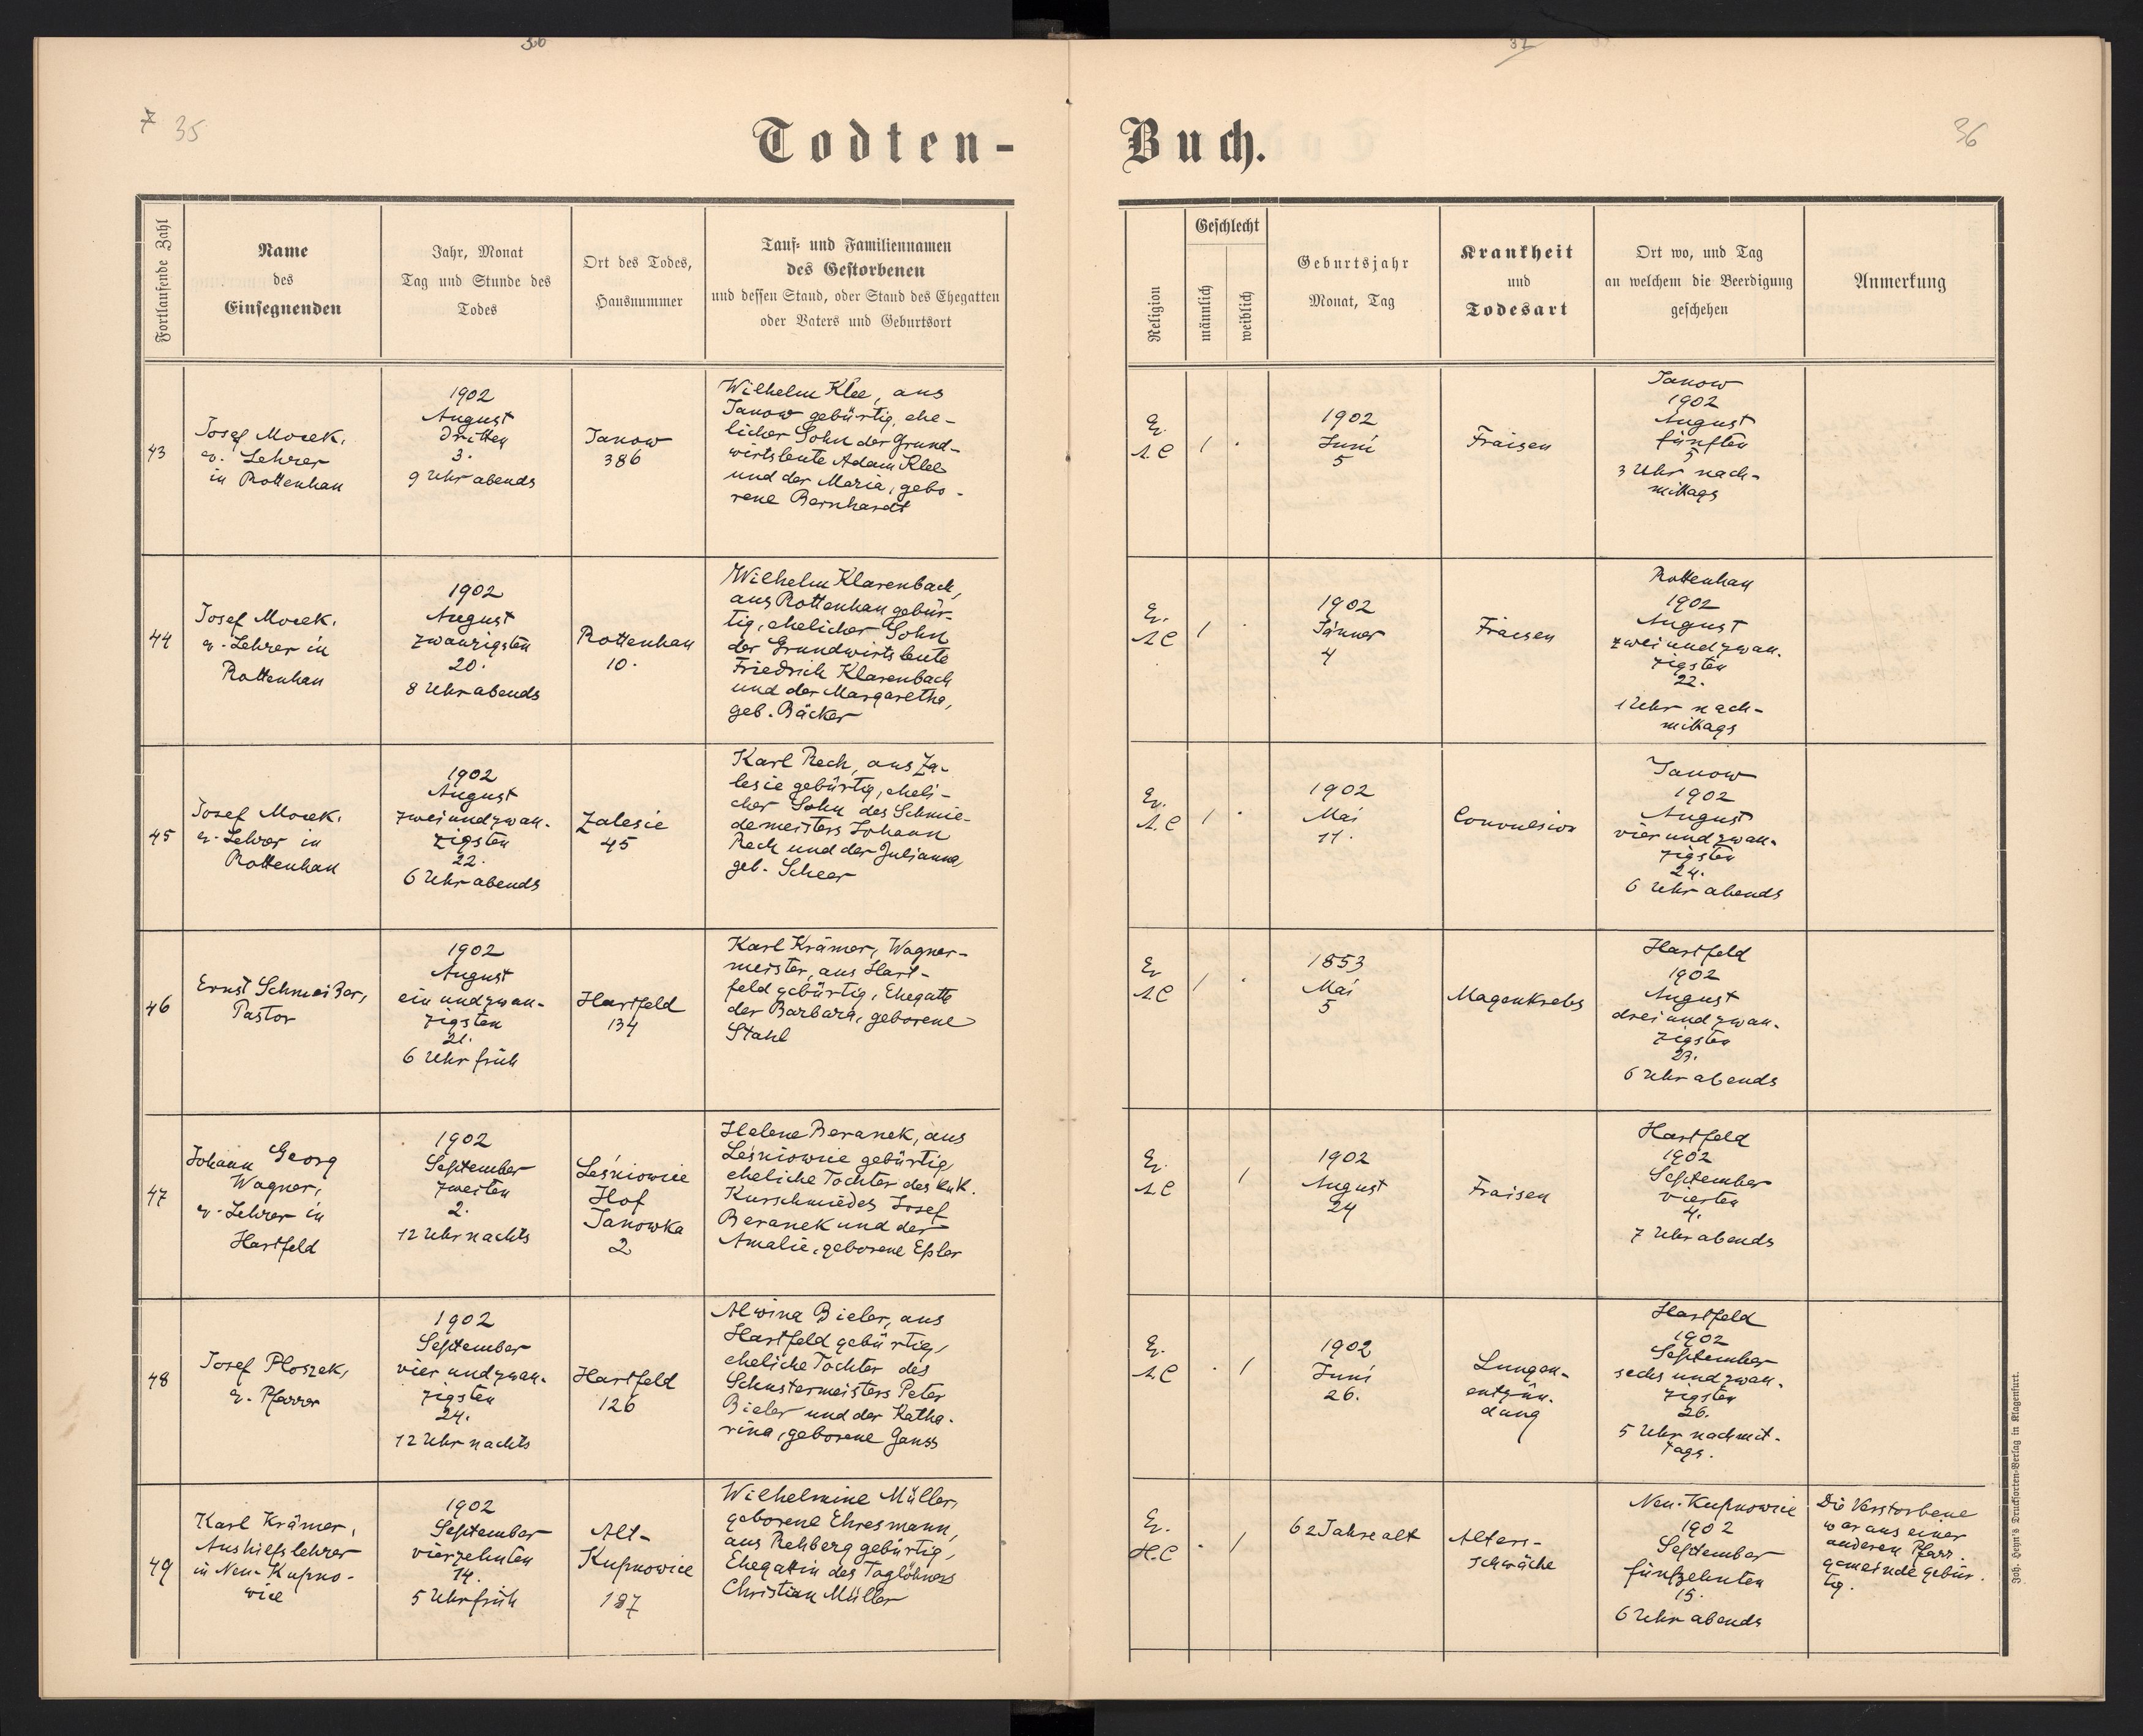 36
37
7 35
36
Todten-
Buch.
Fortlaufende Zahl
Name
des
Einsegnenden
Jahr, Monat
Tag und Stunde des
Todes
Ort des Todes,
Hausnummer
Tauf- und Familiennamen
des Gestorbenen
und dessen Stand, oder Stand des Ehegatten
oder Vaters und Geburtsort
Religion
Geschlecht
männlich
weiblich
Geburtsjahr
Monat, Tag
Krankheit
und
Todesart
Ort wo, und Tag
an welchem die Beerdigung
geschehen
Anmerkung
43
Josef Mocek,
ev. Lehrer
in Rottenhan
1902
August
dritten
3.
9 Uhr abends
Janow
386
Wilhelm Klee, aus
Janow gebürtig, ehe-
licher Sohn der Grund-
wirtsleute Adam Klee
und der Maria, gebo-
rene Bernhardt
Ev.
A.C
1 .
1902
Juni
5
Fraisen
Janow
1902
August
fünften
5
3 Uhr nach-
mittags
44
Josef Mocek,
ev. Lehrer in
Rottenhan
1902
August
zwanzigsten
20.
8 Uhr abends
Rottenhan
10.
Wilhelm Klarenbach,
aus Rottenhan gebür-
tig, ehelicher Sohn
der Grundwirtsleute
Friedrich Klarenbach
und der Margaretha,
geb. Bäcker
Ev.
A.C
1 .
1902
Jänner
4
Fraisen
Rottenhan
1902
August
zweiundzwan-
zigsten
22.
1 Uhr nach-
mittags
45
Josef Mocek,
ev. Lehrer in
Rottenhan
1902
August
zweiundzwan-
zigsten
22.
6 Uhr abends
Zalesie
45
Karl Rech, aus Za-
lesie gebürtig, eheli-
cher Sohn des Schmie-
demeisters Johann
Rech und der Julianna,
geb. Scheer
Ev.
A.C
1 .
1902
Mai
11.
Convulsion
Janow
1902
August
vierundzwan-
zigsten
24.
6 Uhr abends
46
Ernst Schmeißer,
Pastor
1902
August
einundzwan-
zigsten
21.
6 Uhr früh
Hartfeld
134
Karl Krämer, Wagner-
meister, aus Hart-
feld gebürtig, Ehegatte
der Barbara, geborene
Stahl
Ev
A.C
1 .
1853
Mai
5
Magenkrebs
Hartfeld
1902
August
dreiundzwan-
zigsten
23.
6 Uhr abends
47
Johann Georg
Wagner,
ev. Lehrer in
Hartfeld
1902
September
zweiten
2.
12 Uhr nachts
Leśniowice
Hof
Janowka
2
Helene Beranek, aus
Leśniowice gebürtig,
eheliche Tochter des k.u.k.
Kurschmiedes Josef
Beranek und der
Amalie, geborene Eßler
Ev.
A.C
1
1902
August
24
Fraisen
Hartfeld
1902
September
vierten
4.
7 Uhr abends
48
Josef Ploszek,
ev. Pfarrer
1902
September
vierundzwan-
zigsten
24.
12 Uhr nachts
Hartfeld
126
Alwina Bieler, aus
Hartfeld gebürtig,
eheliche Tochter des
Schustermeisters Peter
Bieler und der Katha-
rina, geborene Ganss
Ev.
A.C
. 1
1902
Juni
26.
Lungen-
entzün-
dung
Hartfeld
1902
September
sechsundzwan-
zigsten
26.
5 Uhr nachmit-
tags.
49
Karl Krämer,
Aushilfslehrer
in Neu-Kupno-
wice
1902
September
vierzehnten
14.
5 Uhr früh
Alt-
Kupnowice
187
Wilhelmine Müller,
geborene Ehresmann,
aus Rehberg gebürtig,
Ehegattin des Taglöhners
Christian Müller
Ev.
H.C
. 1
62 Jahre alt
Alters-
schwäche
Neu-Kupnowice
1902
September
fünfzehnten
15.
6 Uhr abends
Die Verstorbene
war aus einer
anderen Pfarr-
gemeinde gebür-
tig.
Joh. Heyn's Drucksorten-Verlag in Klagenfurt.